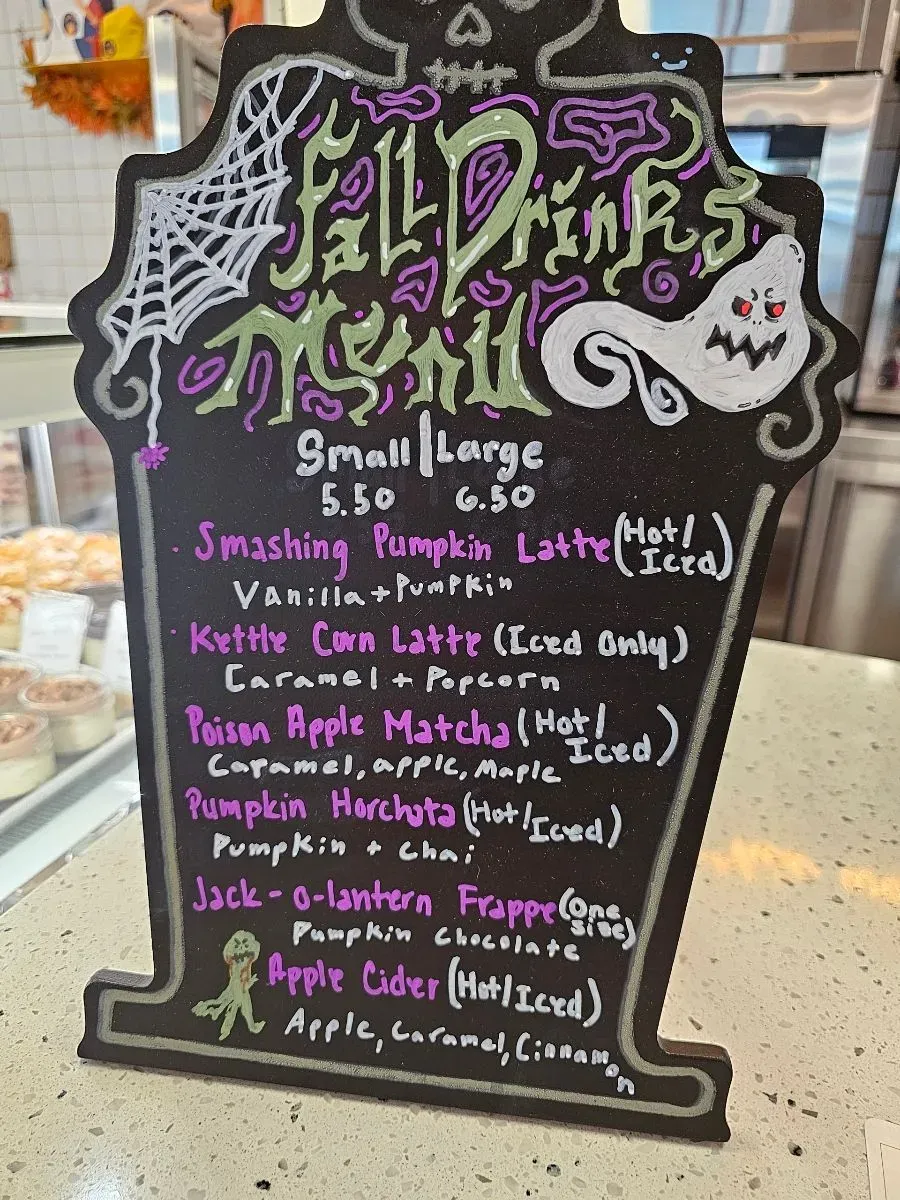 Fall Drinks
Menu
Small | Large
5.50 6.50
· Smashing Pumpkin Latte (Hot/
Iced)
Vanilla + Pumpkin
· Kettle Corn Latte (Iced Only)
Caramel + Popcorn
Poison Apple Matcha (Hot/
Iced)
Caramel, apple, Maple
Pumpkin Horchata (Hot/Iced)
Pumpkin + Chai
Jack-o-lantern Frappe (One
size)
Pumpkin Chocolate
Apple Cider (Hot/Iced)
Apple, Caramel, Cinnamon